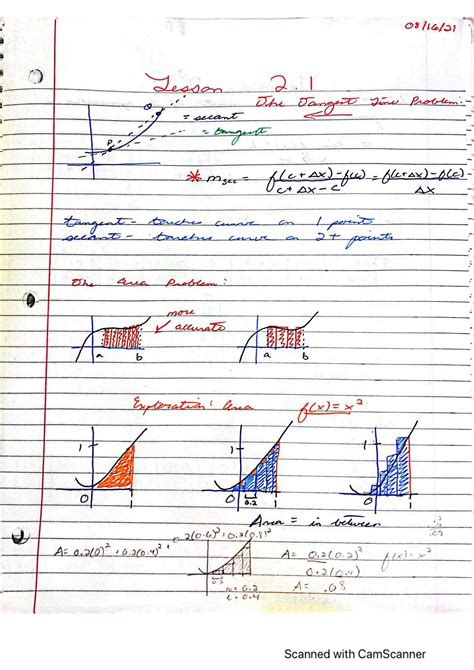 08/16/21
Lesson 2.1
The Tangent Line Problem.
Q
= secant
= tangent
P
* msec = f(c+Δx)-f(c) / c+Δx-c = f(c+Δx)-f(c) / Δx
tangent - touches curve on 1 point
secant - touches curve on 2+ points
The Area Problem:
more accurate
a b a b
Exploration: Area f(x) = x²
1 1 1
0 1 0 0.2 1 0 1
Area = in between
A = 0.2(0)² + 0.2(0.4)² +
A = 0.2(0.2)² f(x) = x²
0.2(0.4)
w = 0.2 A = .08
l = 0.4
Scanned with CamScanner